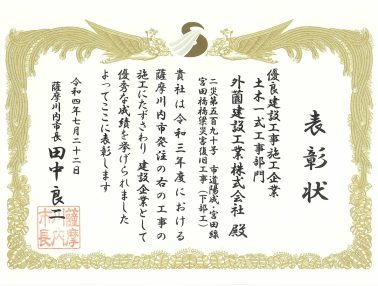 表彰状
優良建設工事施工企業
土木一式工事部門
外薗建設工業株式会社 殿
二災第五百九十号 市道陽成・宮田線
宮田橋橋梁災害復旧工事(下部工)
貴社は令和三年度における
薩摩川内市発注の右の工事の
施工にたずさわり 建設企業として
優秀な成績を挙げられました
よってここに表彰します
令和四年七月二十二日
薩摩川内市長 田中良二
薩摩
川内
市長